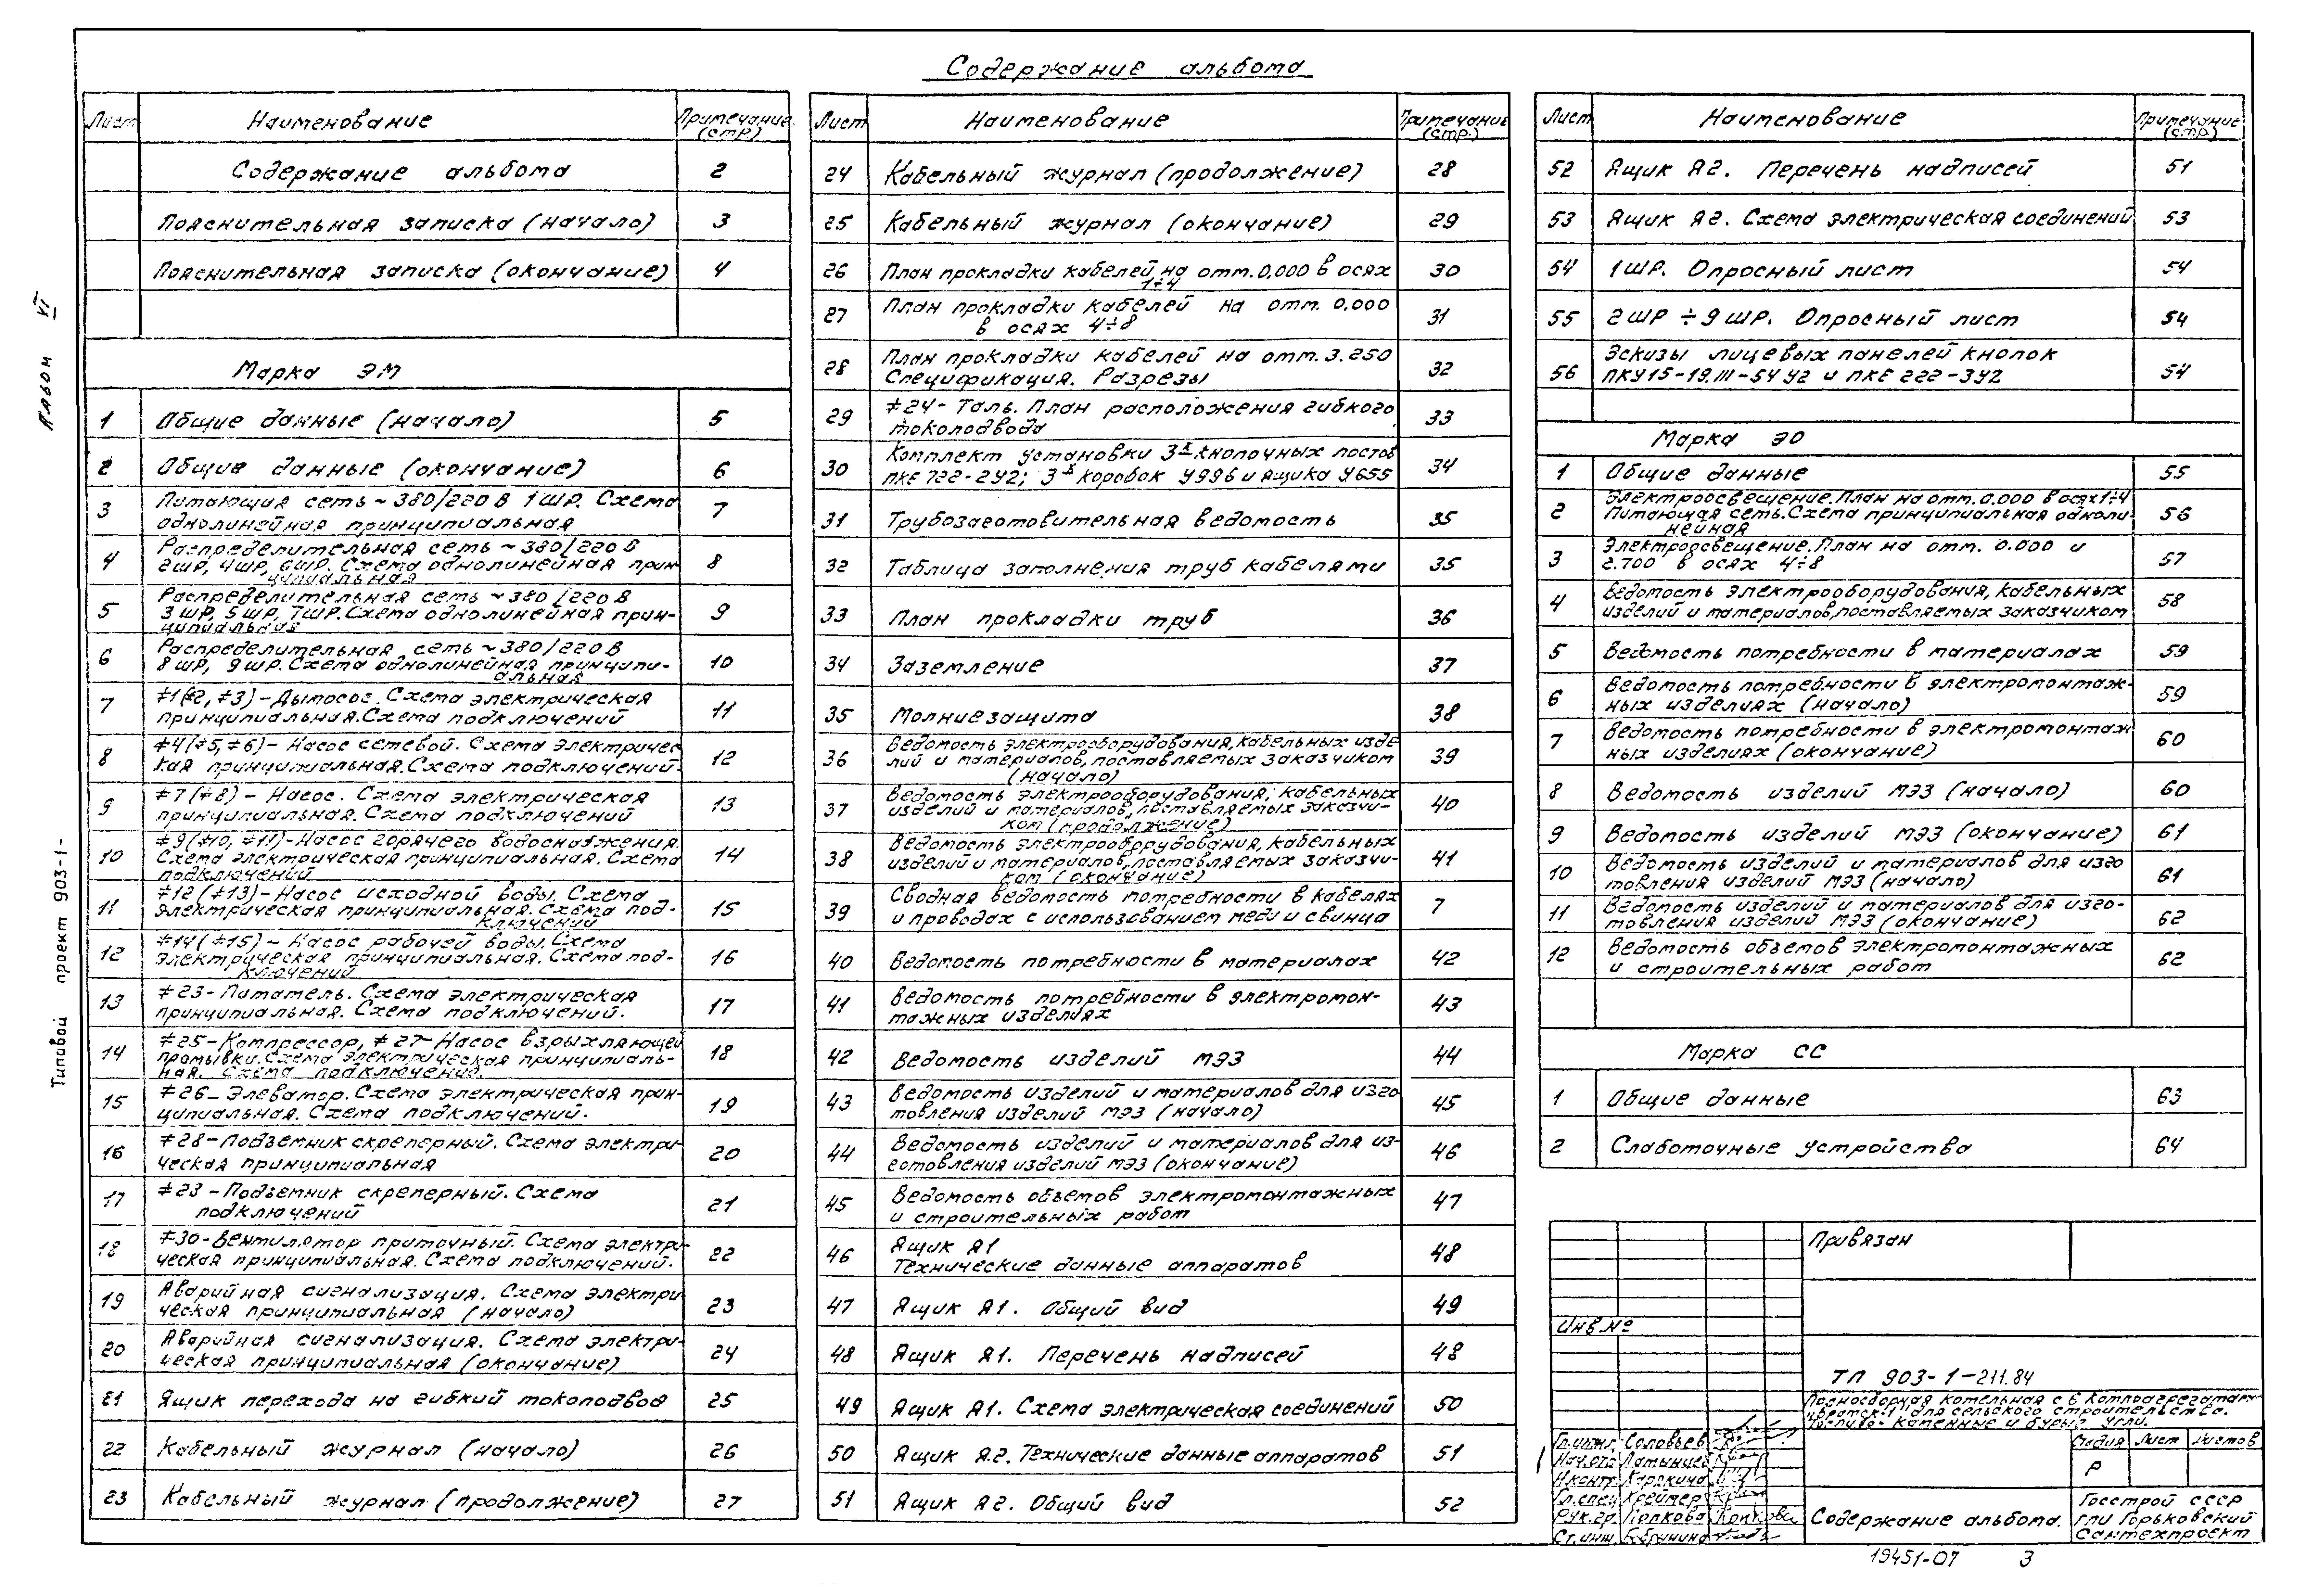 Содержание альбома
Альбом VI
Типовой проект 903-1-
Лист Наименование Примечание (стр)
Содержание альбома 2
Пояснительная записка (начало) 3
Пояснительная записка (окончание) 4
Марка ЭМ
1 Общие данные (начало) 5
2 Общие данные (окончание) 6
3 Питающая сеть ~380/220 В 1ШР. Схема
однолинейная принципиальная 7
4 Распределительная сеть ~380/220 В
2ШР, 4ШР, 6ШР. Схема однолинейная прин-
ципиальная 8
5 Распределительная сеть ~380/220 В
3ШР, 5ШР, 7ШР. Схема однолинейная прин-
ципиальная 9
6 Распределительная сеть ~380/220 В
8ШР, 9ШР. Схема однолинейная принципи-
альная 10
7 ≠1(≠2, ≠3)-Дымосос. Схема электрическая
принципиальная. Схема подключений 11
8 ≠4(≠5, ≠6)-Насос сетевой. Схема электричес
кая принципиальная. Схема подключений. 12
9 ≠7(≠8)-Насос. Схема электрическая
принципиальная. Схема подключений 13
10 ≠9(≠10, ≠11)-Насос горячего водоснабжения.
Схема электрическая принципиальная. Схема
подключений 14
11 ≠12(≠13)-Насос исходной воды. Схема
электрическая принципиальная. Схема под-
ключений 15
12 ≠14(≠15)-Насос рабочей воды. Схема
электрическая принципиальная. Схема под-
ключений 16
13 ≠23-Питатель. Схема электрическая
принципиальная. Схема подключений. 17
14 ≠25-Компрессор, ≠27-Насос взрыхляющей
промывки. Схема электрическая принципиаль-
ная. Схема подключений. 18
15 ≠26-Элеватор. Схема электрическая прин-
ципиальная. Схема подключений. 19
16 ≠28-Подъемник скреперный. Схема электри-
ческая принципиальная 20
17 ≠23-Подъемник скреперный. Схема
подключений 21
18 ≠30-Вентилятор приточный. Схема электри-
ческая принципиальная. Схема подключений. 22
19 Аварийная сигнализация. Схема электри
ческая принципиальная (начало) 23
20 Аварийная сигнализация. Схема электри-
ческая принципиальная (окончание) 24
21 Ящик перехода на гибкий токоподвод 25
22 Кабельный журнал (начало) 26
23 Кабельный журнал (продолжение) 27
Лист Наименование Примечание (стр.)
24 Кабельный журнал (продолжение) 28
25 Кабельный журнал (окончание) 29
26 План прокладки кабелей на отм. 0,000 в осях
1÷4 30
27 План прокладки кабелей на отм. 0.000
в осях 4÷8 31
28 План прокладки кабелей на отм. 3.250
Спецификация. Разрезы 32
29 ≠24-Таль. План расположения гибкого
токоподвода 33
30 Комплект установки 3х кнопочных постов
ПКЕ 722-2У2; 3х коробок У996 и ящика У655 34
31 Трубозаготовительная ведомость 35
32 Таблица заполнения труб кабелями 35
33 План прокладки труб 36
34 Заземление 37
35 Молниезащита 38
36 Ведомость электрооборудования, кабельных изде
лий и материалов, поставляемых заказчиком
(начало) 39
37 Ведомость электрооборудования, кабельных
изделий и материалов, поставляемых заказчи-
ком (продолжение) 40
38 Ведомость электрооборудования, кабельных
изделий и материалов, поставляемых заказчи-
ком (окончание) 41
39 Сводная ведомость потребности в кабелях
и проводах с использованием меди и свинца 7
40 Ведомость потребности в материалах 42
41 Ведомость потребности в электромон-
тажных изделиях 43
42 Ведомость изделий МЭЗ 44
43 Ведомость изделий и материалов для изго
товления изделий МЭЗ (начало) 45
44 Ведомость изделий и материалов для из-
готовления изделий МЭЗ (окончание) 46
45 Ведомость объемов электромонтажных
и строительных работ 47
46 Ящик Я1
Технические данные аппаратов 48
47 Ящик Я1. Общий вид 49
48 Ящик Я1. Перечень надписей 48
49 Ящик Я1. Схема электрическая соединений 50
50 Ящик Я2. Технические данные аппаратов 51
51 Ящик Я2. Общий вид 52
Лист Наименование Примечание (стр.)
52 Ящик Я2. Перечень надписей 51
53 Ящик Я2. Схема электрическая соединений 53
54 1ШР. Опросный лист 54
55 2ШР÷9ШР. Опросный лист 54
56 Эскизы лицевых панелей кнопок
ПКУ15-19.III-54У2 и ПКЕ 222-3У2 54
Марка ЭО
1 Общие данные 55
2 Электроосвещение. План на отм. 0.000 в осях 1÷4
Питающая сеть. Схема принципиальная одноли-
нейная 56
3 Электроосвещение. План на отм. 0.000 и
2.700 в осях 4÷8 57
4 Ведомость электрооборудования, кабельных
изделий и материалов, поставляемых заказчиком 58
5 Ведомость потребности в материалах 59
6 Ведомость потребности в электромонтаж-
ных изделиях (начало) 59
7 Ведомость потребности в электромонтаж
ных изделиях (окончание) 60
8 Ведомость изделий МЭЗ (начало) 60
9 Ведомость изделий МЭЗ (окончание) 61
10 Ведомость изделий и материалов для изго
товления изделий МЭЗ (начало) 61
11 Ведомость изделий и материалов для изго-
товления изделий МЭЗ (окончание) 62
12 Ведомость объемов электромонтажных
и строительных работ 62
Марка СС
1 Общие данные 63
2 Слаботочные устройства 64
Привязан
Инв №
ТП 903-1-211.84
Полносборная котельная с 6 котлоагрегатами
"Братск-1" для сельского строительства.
Топливо- каменные и бурые угли.
Гл.инж. Соловьев
Нач.отд Латынцев
Н.контр. Карякина
Гл.спец Креймер
Рук.гр. Попкова
Ст.инж.
Стадия Лист Листов
Р
Содержание альбома.
Госстрой СССР
ГПИ Горьковский
Сантехпроект
19451-07 3